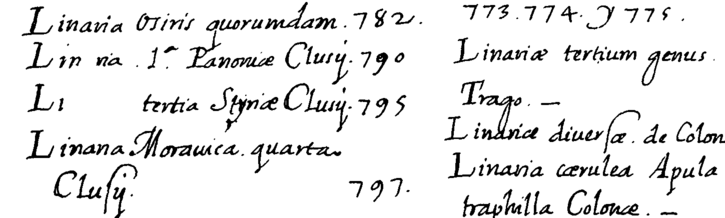 Linaria Osiris quorumdam. 782.
Lin ria . 1.a Panoniæ Clusÿ. 790
Li tertia Styriæ Clusÿ. 795
Linaria Moravica. quarta
Clusÿ. 797.
773. 774. & 775.
Linariæ tertium genus.
Trago. —
Linariæ diuersæ. de Colon
Linaria cærulea Apula
traphilla Colonæ. —